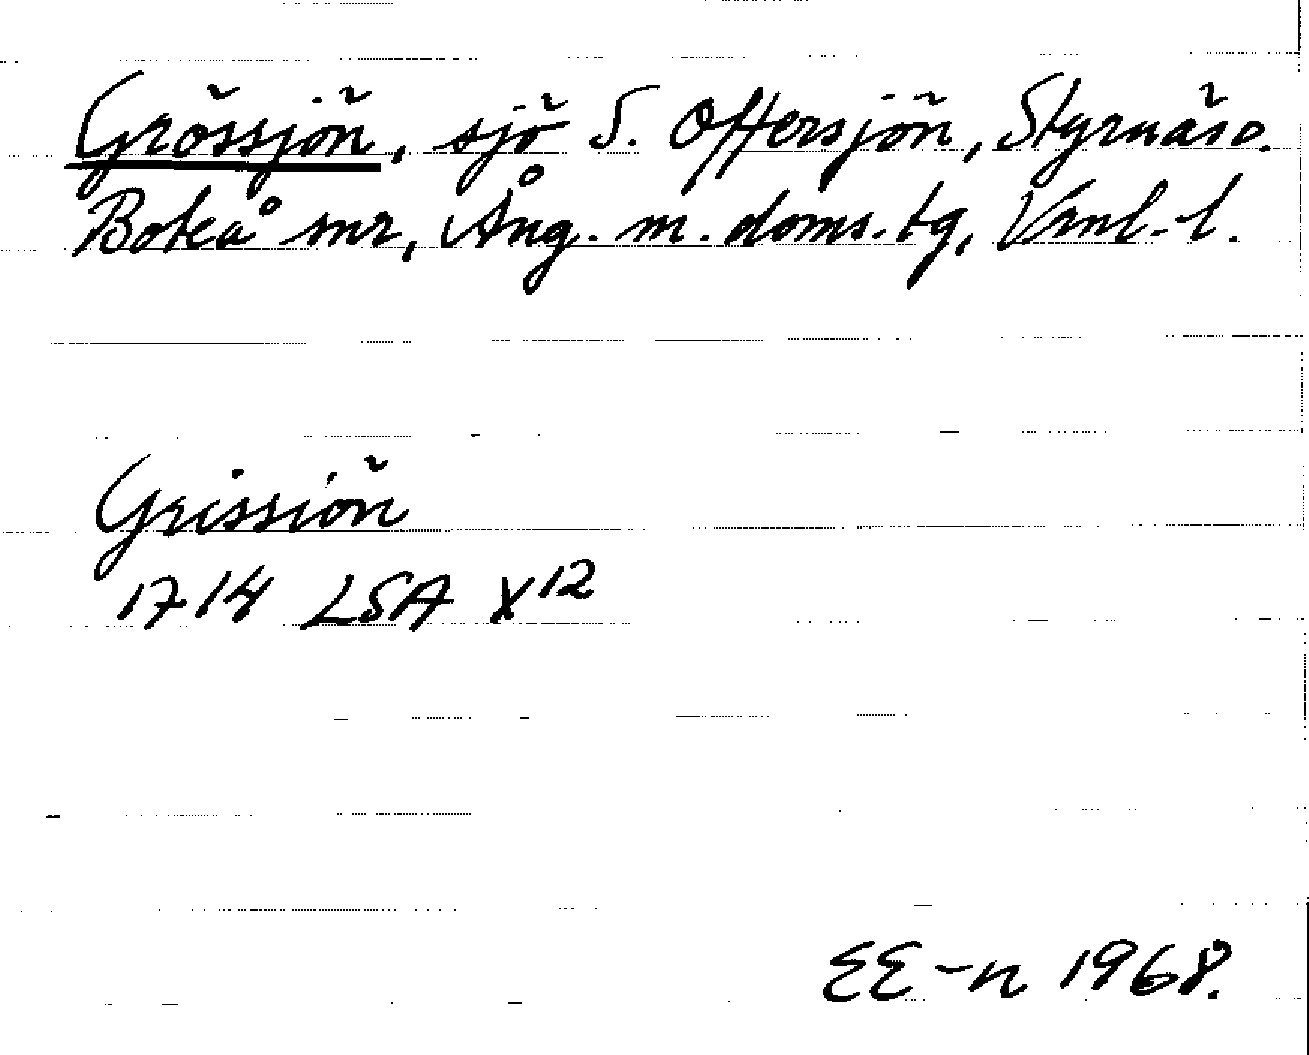 Grössjön, sjö S. Offersjön, Styrnäs s.
Boteå snr, Ång. m. doms.-tg, Vnl.-l.
Grissiön
1714 LSA X12
EE-n 1968.